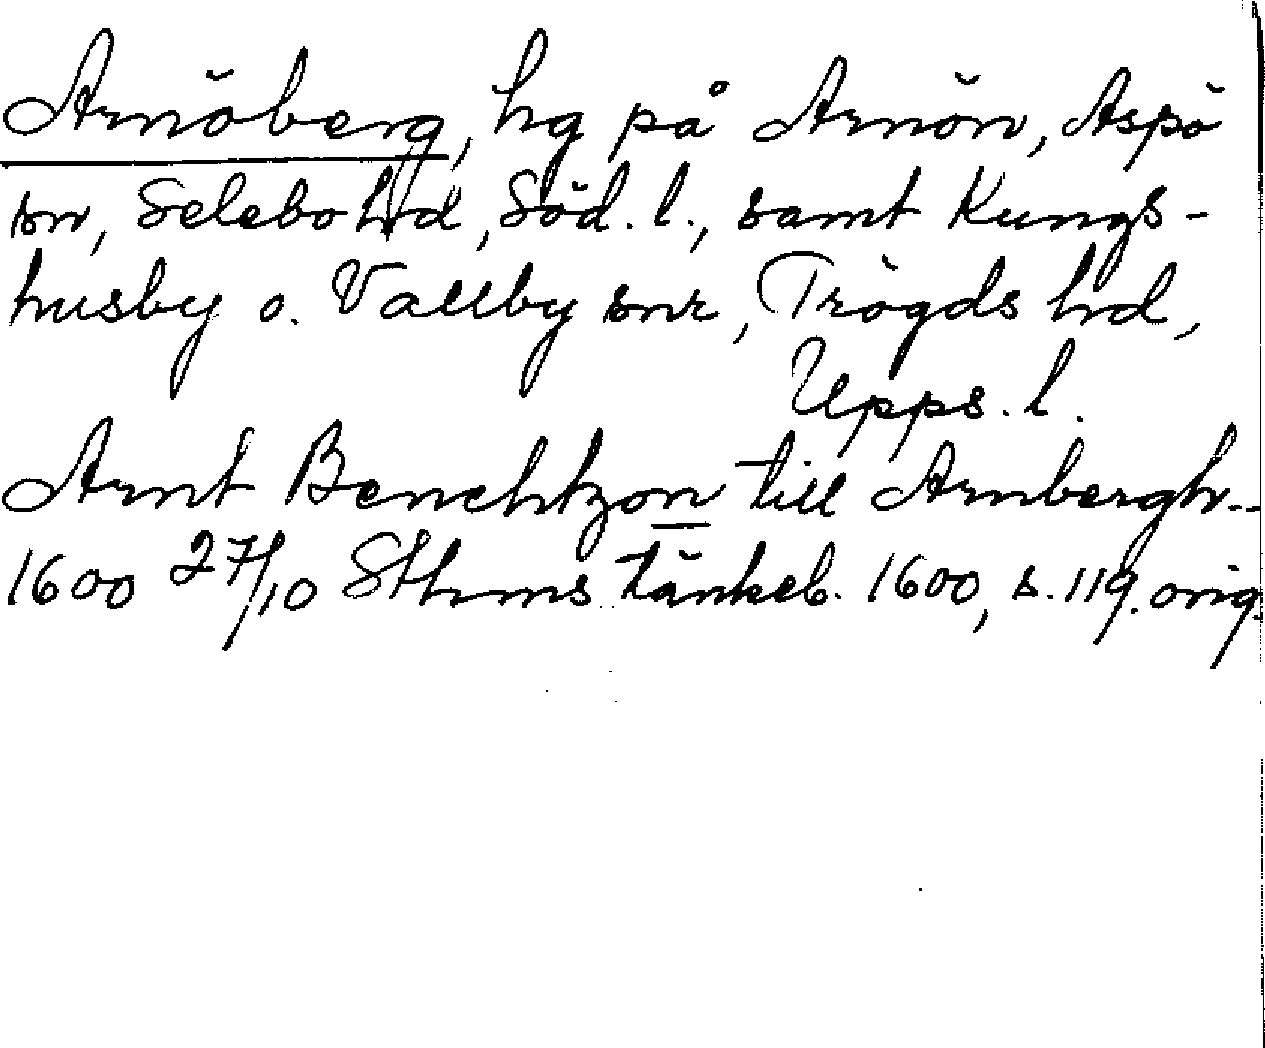 Arnöberg, hg på Arnön, Aspö
sn, Selebo hd, Söd. l., samt Kungs-
husby o. Vallby snr, Trögds hd,
Upps. l.
Arnt Benchtzon till Arnbergh--
1600 27/10 Sthms tänkeb. 1600, s. 119. orig.